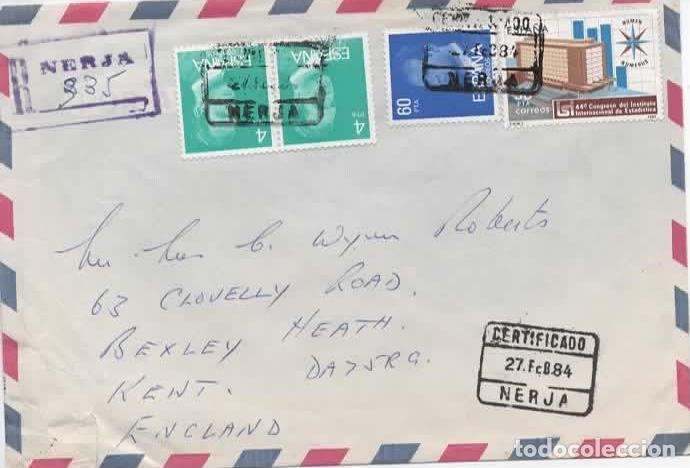 NERJA
335
ESPAÑA
4
PTA
ESPAÑA
4
PTA
NERJA
ESPAÑA
60
PTA
NERJA
NUMEN
NUMERUS
PTA
CORREOS
44º Congreso del Instituto
Internacional de Estadística
C. Wynn Roberts
63 CLOVELLY ROAD.
BEXLEY HEATH.
KENT. DA75RG.
ENGLAND
CERTIFICADO
27.FEB.84
NERJA
todocoleccion